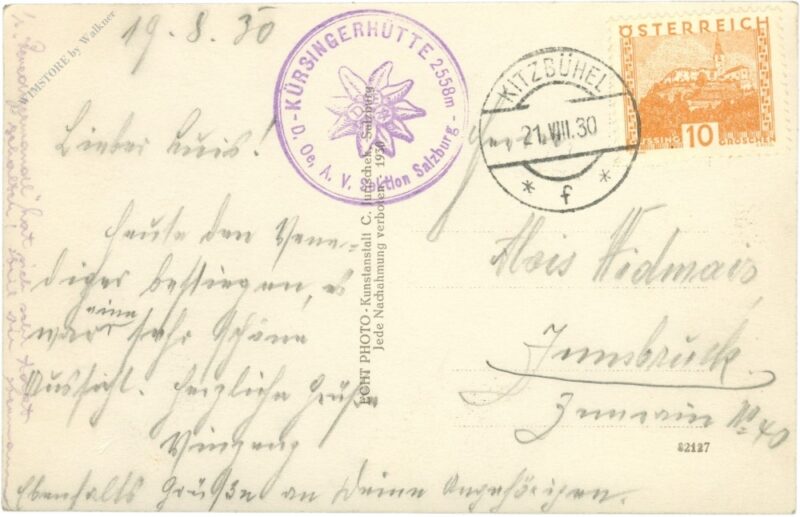 19.8.30
Lieber Luis!
Heute den Vene-
diger bestiegen, es
war eine sehr schöne
Aussicht. Herzliche Grüße
Vinzenz
Ebenfalls Grüße an Deine Angehörigen.
KÜRSINGERHÜTTE 2558m
D. Oe. A. V. Sektion Salzburg
ECHT PHOTO · Kunstanstalt C. Jurischek, Salzburg
Jede Nachahmung verboten. 1930
KITZBÜHEL
21.VIII.30
* f *
ÖSTERREICH
10
GÜSSING GROSCHEN
Herrn
Alois Widmair
Innsbruck
Innrain No 40
82127
FILMSTORE by Walkner
hat sich sehr